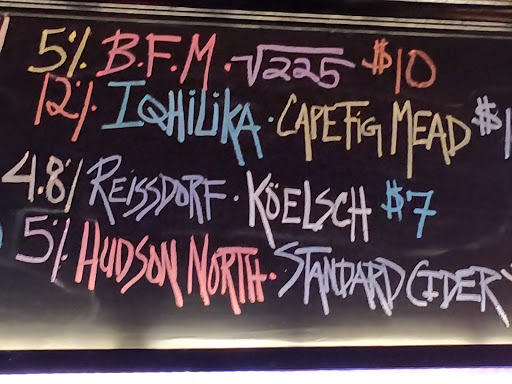 5% B.F.M. √225 $10
12% IQHILIKA · CAPE FIG MEAD $1
4.8% REISSDORF · KÖELSCH $7
5% HUDSON NORTH · STANDARD CIDER